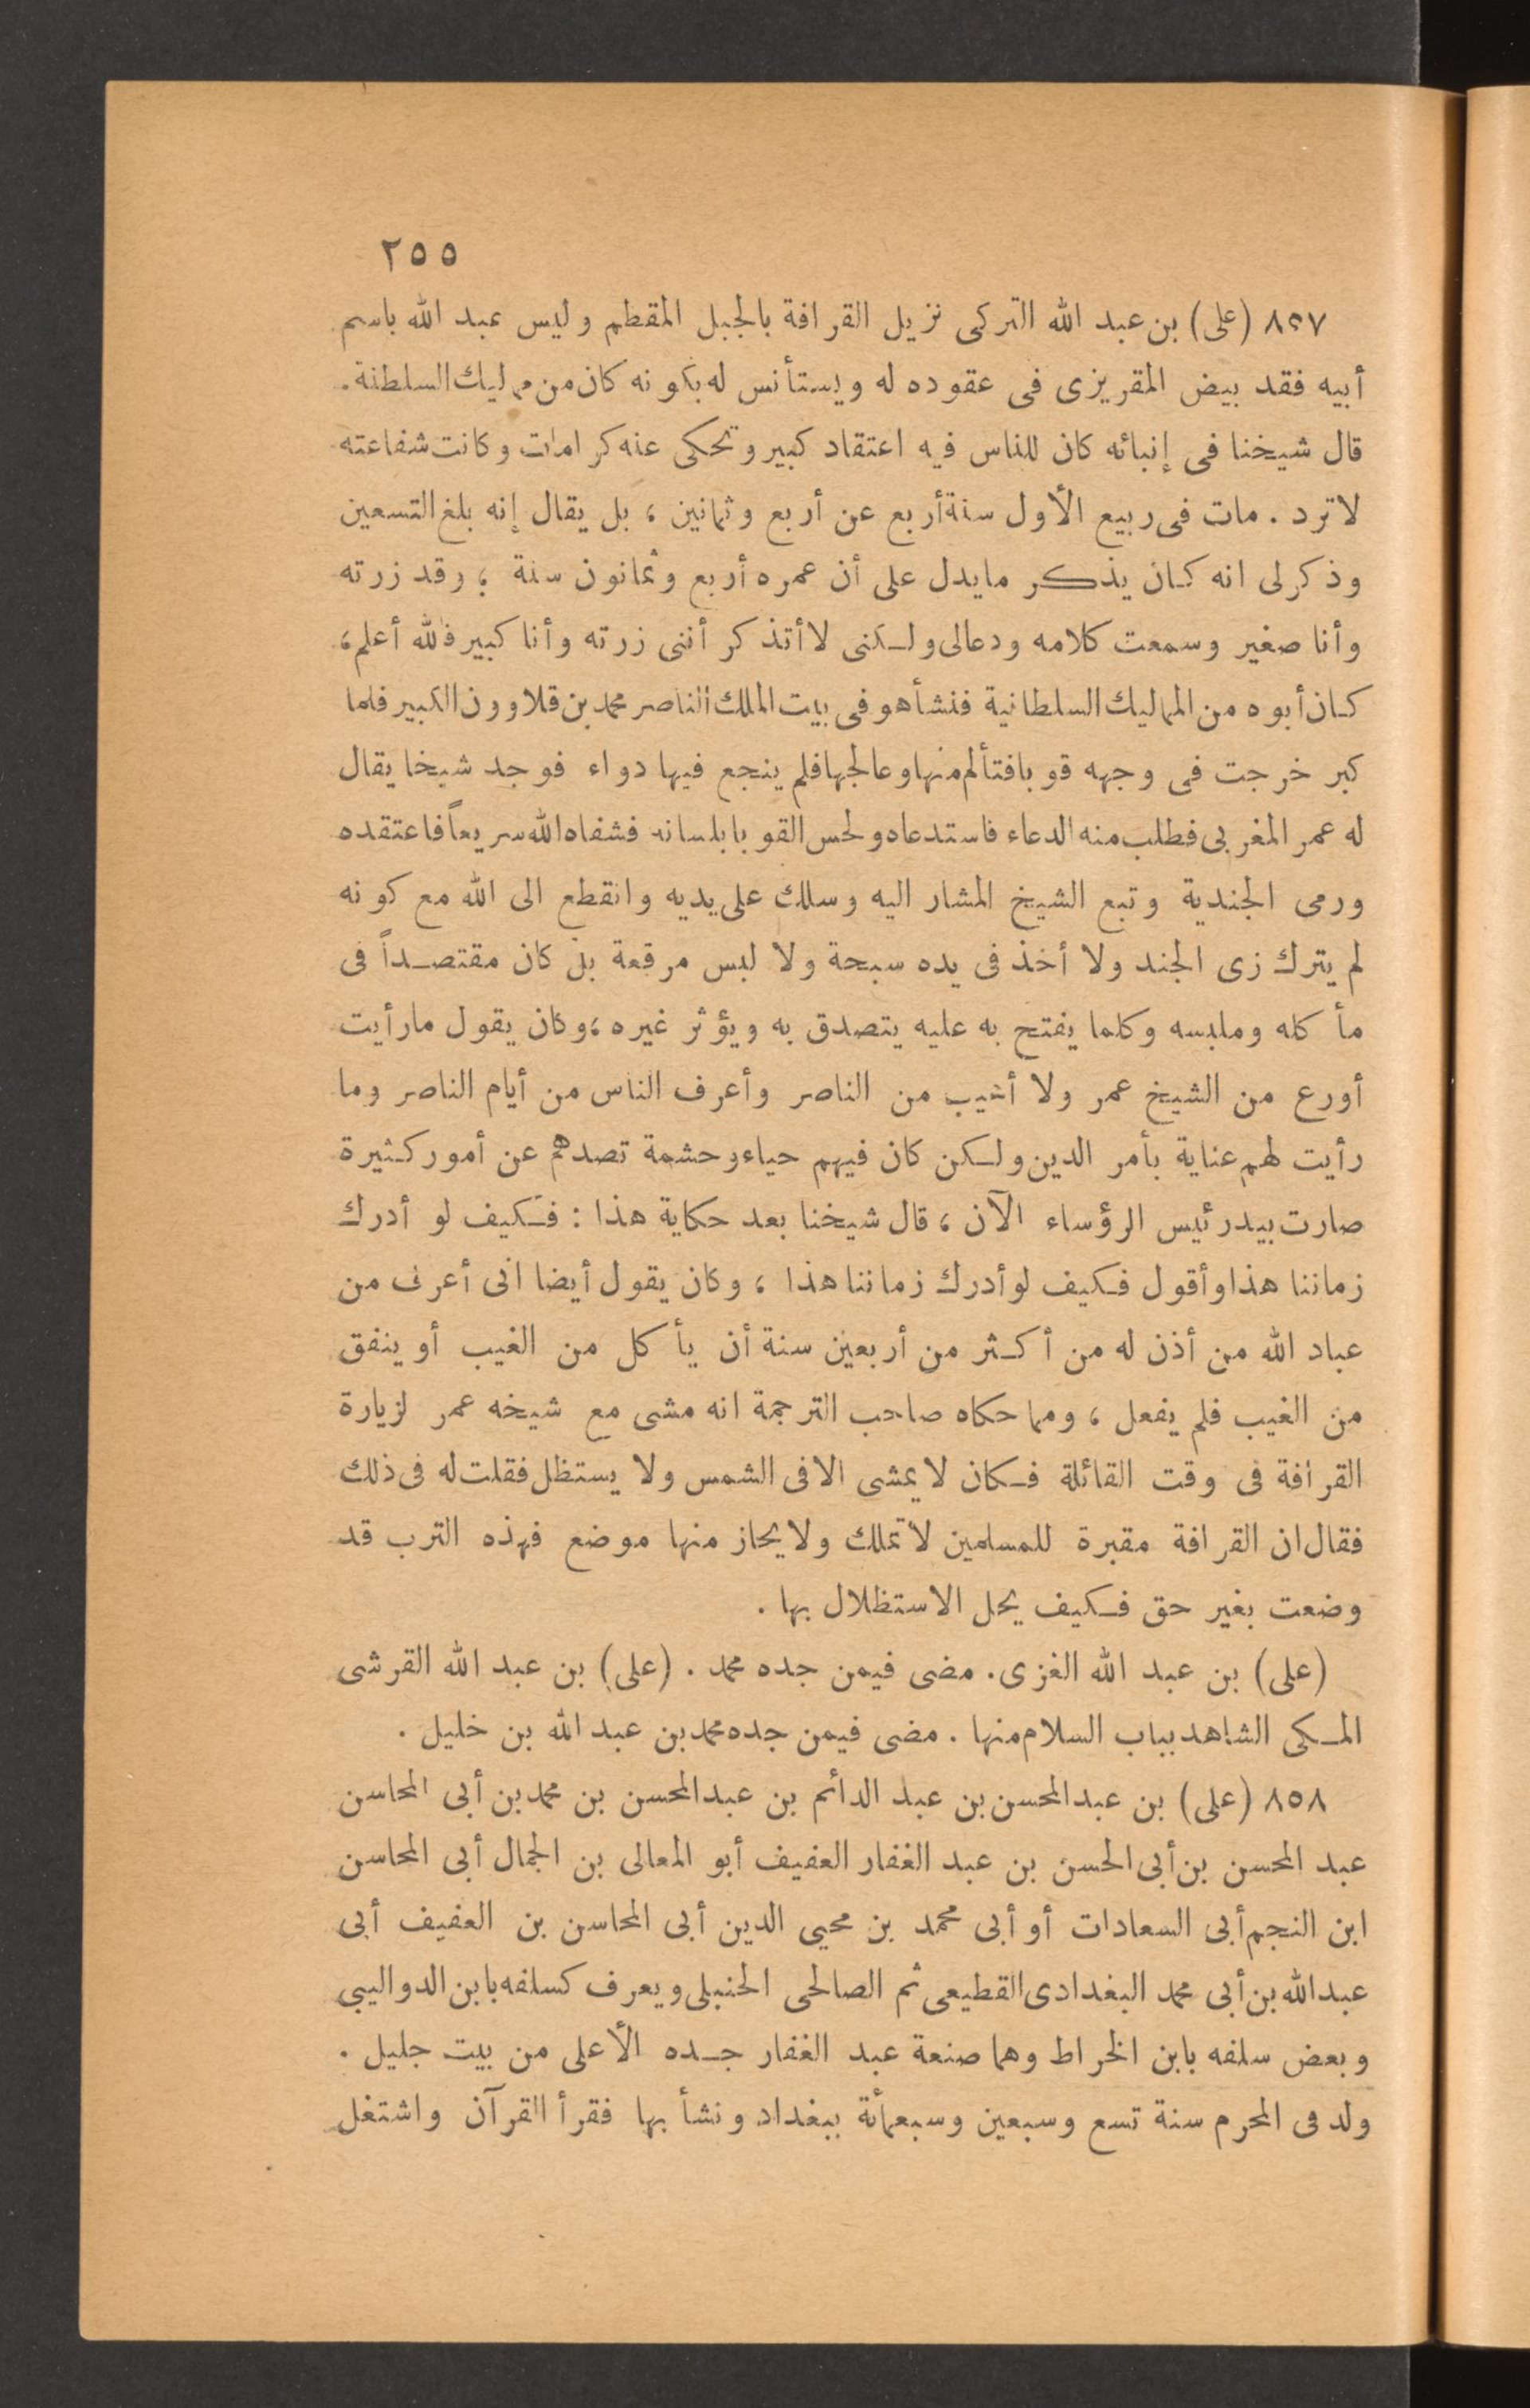 ٢٥٥
٨٥٧ (على) بن عبد الله التركى نزيل القرافة بالجبل المقطم وليس عبد الله باسم
أبيه فقد بيض المقريزى فى عقوده له ويستأنس له بكونه كان من مماليك السلطنة.
قال شيخنا فى إنبائه كان للناس فيه اعتقاد كبير وتحكى عنه كرامات وكانت شفاعته
لا ترد . مات فى ربيع الأول سنة أربع عن أربع وثمانين ، بل يقال إنه بلغ التسعين
وذكر لى انه كان يذكر مايدل على أن عمره أربع وثمانون سنة ؛ وقد زرته
وأنا صغير وسمعت كلامه ودعالى ولكنى لا أتذكر أننى زرته وأنا كبير فالله أعلم،
كان أبوه من المماليك السلطانية فنشأ هو فى بيت الملك الناصر محمد بن قلاوون الكبير فلما
كبر خرجت فى وجهه قوبا فتألم منها وعالجها فلم ينجع فيها دواء فوجد شيخا يقال
له عمر المغربى فطلب منه الدعاء فاستدعاه ولحس القوبا بلسانه فشفاه الله سريعاً فاعتقده
ورمى الجندية وتبع الشيخ المشار اليه وسلك على يديه وانقطع الى الله مع كونه
لم يترك زى الجند ولا أخذ فى يده سبحة ولا لبس مرقعة بل كان مقتصداً فى
مأكله وملبسه وكلما يفتح به عليه يتصدق به ويؤثر غيره ،وكان يقول مارأيت
أورع من الشيخ عمر ولا أهيب من الناصر وأعرف الناس من أيام الناصر وما
رأيت لهم عناية بأمر الدين ولكن كان فيهم حياء وحشمة تصدهم عن أمور كثيرة
صارت بيد رئيس الرؤساء الآن ، قال شيخنا بعد حكاية هذا : فكيف لو أدرك
زماننا هذا وأقول فكيف لو أدرك زماننا هذا ، وكان يقول أيضا انى أعرف من
عباد الله من أذن له من أكثر من أربعين سنة أن يأكل من الغيب أو ينفق
من الغيب فلم يفعل ، ومما حكاه صاحب الترجمة انه مشى مع شيخه عمر لزيارة
القرافة فى وقت القائلة فكان لا يمشى الا فى الشمس ولا يستظل فقلت له فى ذلك
فقال ان القرافة مقبرة للمسلمين لا تملك ولا يحاز منها موضع فهذه الترب قد
وضعت بغير حق فكيف يحل الاستظلال بها .
(على) بن عبد الله الغزى . مضى فيمن جده محمد . (على) بن عبد الله القرشى
المكى الشاهد بباب السلام منها . مضى فيمن جده محمد بن عبد الله بن خليل .
٨٥٨ (على) بن عبد المحسن بن عبد الدائم بن عبد المحسن بن محمد بن أبى المحاسن
عبد المحسن بن أبى الحسن بن عبد الغفار العفيف أبو المعالى بن الجمال أبى المحاسن
ابن النجم أبى السعادات أو أبى محمد بن محيي الدين أبى المحاسن بن العفيف أبى
عبد الله بن أبى محمد البغدادى القطيعى ثم الصالحى الحنبلى ويعرف كسلفه بابن الدواليبى
وبعض سلفه بابن الخراط وهما صنعة عبد الغفار جده الأعلى من بيت جليل .
ولد فى المحرم سنة تسع وسبعين وسبعمأة ببغداد ونشأ بها فقرأ القرآن واشتغل